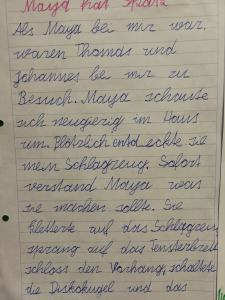 Maya hat Spaß
Als Maya bei mir war,
waren Thomas und
Johannes bei mir zu
Besuch. Maya schaute
sich neugierig im Haus
um. Plötzlich entdeckte sie
mein Schlagzeug. Sofort
verstand Maya was
sie machen sollte. Sie
kletterte auf das Schlagzeug
sprang auf das Fensterbrett
schloss den Vorhang, schaltete
die Diskokugel und das